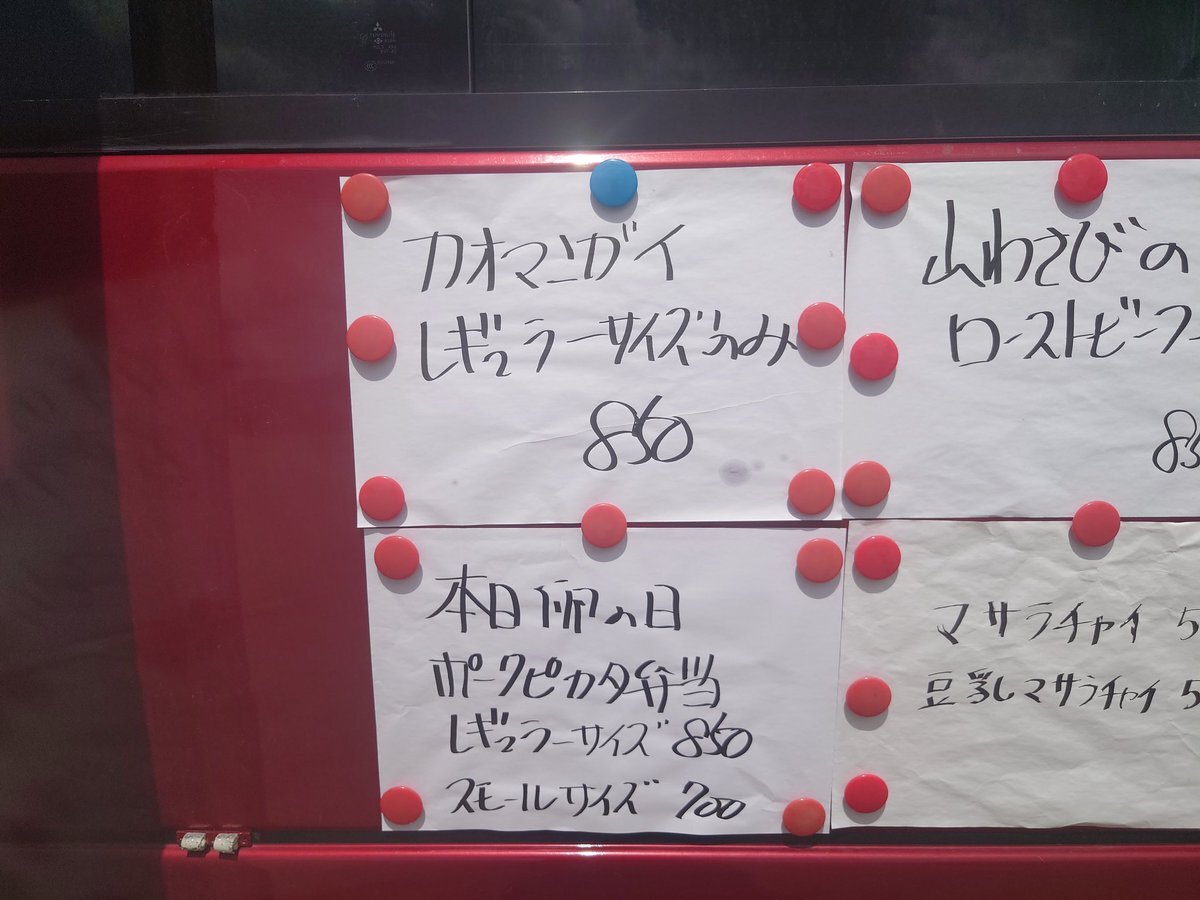 カオマンガイ
レギュラーサイズのみ
850
山わさびの
ローストビーフ
本日卵の日
ポークピカタ弁当
レギュラーサイズ 850
スモールサイズ 700
マサラチャイ 5
豆乳マサラチャイ 5